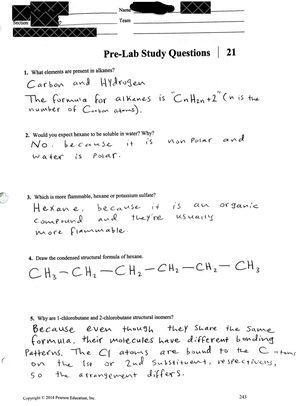 Name
Section
Team
Pre-Lab Study Questions | 21
1. What elements are present in alkanes?
Carbon and Hydrogen
The formula for alkanes is "CnH2n+2" (n is the
number of Carbon atoms).
2. Would you expect hexane to be soluble in water? Why?
No. because it is nonpolar and
water is polar.
3. Which is more flammable, hexane or potassium sulfate?
Hexane, because it is an organic
compound and they're usually
more flammable.
4. Draw the condensed structural formula of hexane.
CH3-CH2-CH2-CH2-CH2-CH3
5. Why are 1-chlorobutane and 2-chlorobutane structural isomers?
Because even though they share the same
formula, their molecules have different bonding
Patterns. The Cl atoms are bound to the C atoms
on the 1st or 2nd substituent, respectively,
so the arrangement differs.
Copyright © 2014 Pearson Education, Inc.
243